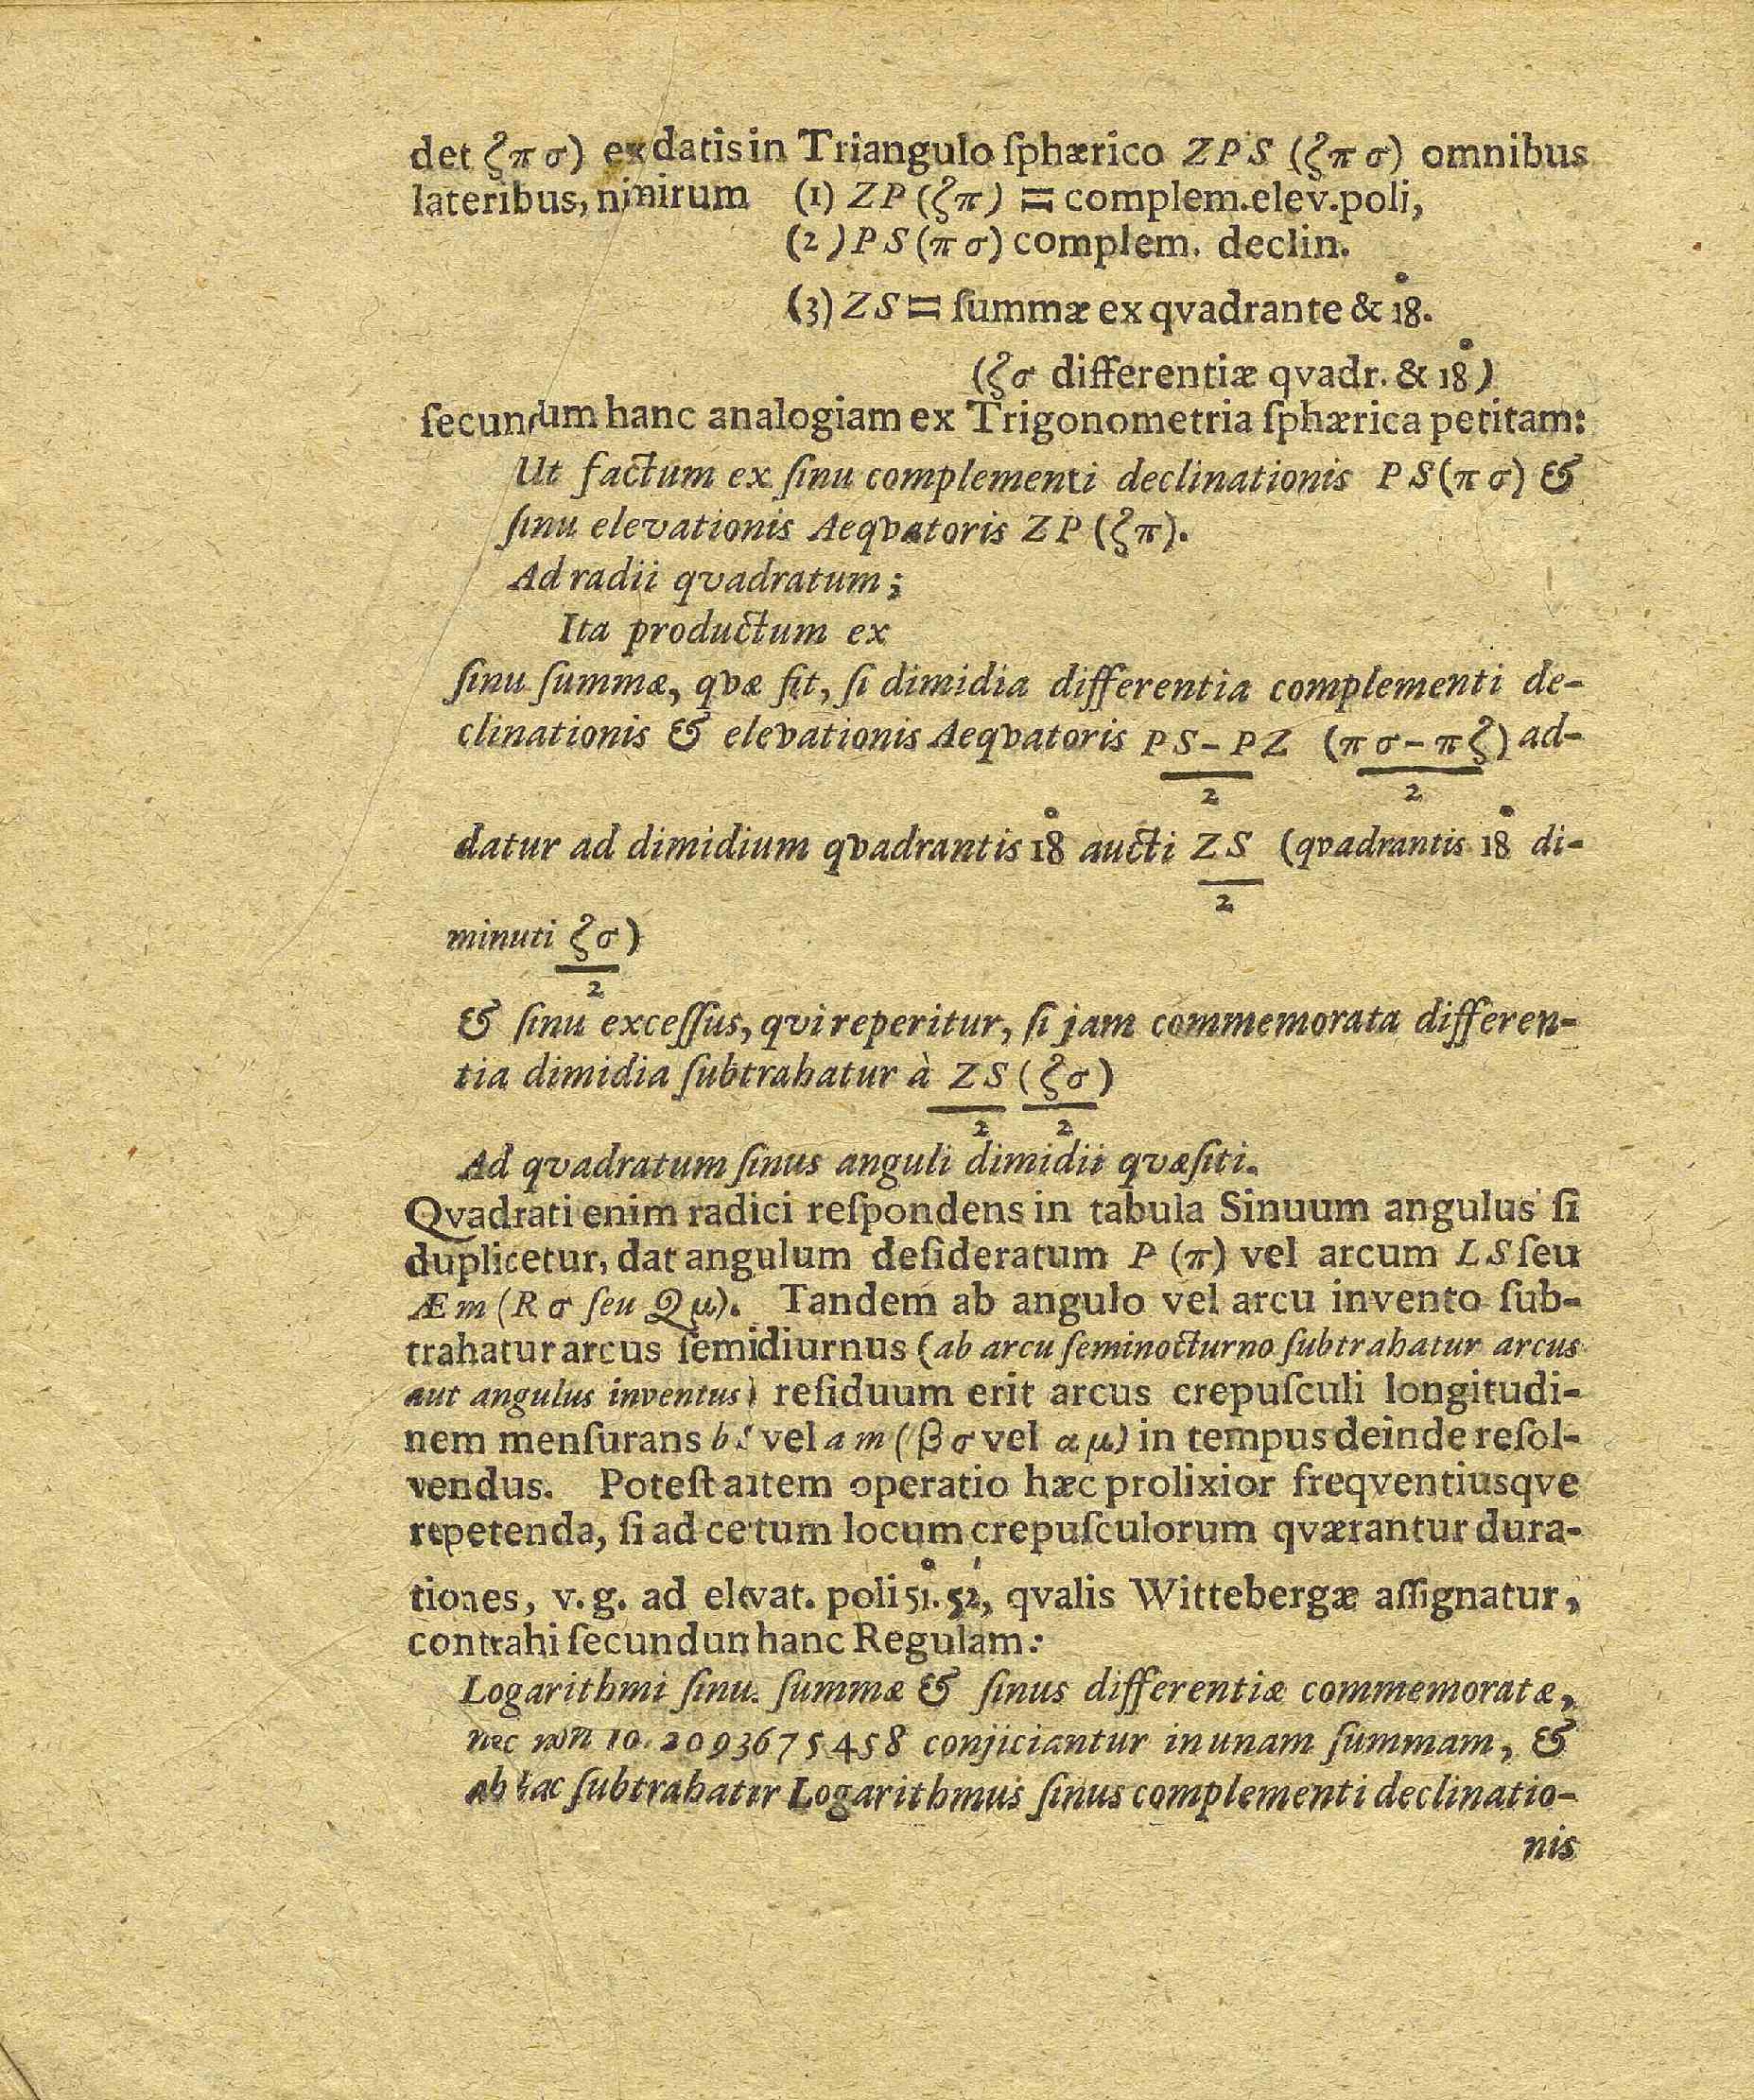 det ζπσ) ex datis in Triangulo ſphærico ZPS (ζπσ) omnibus
lateribus, nimirum (1) ZP (ζπ) = complem. elev. poli,
(2) PS (πσ) complem. declin.
(3) ZS = ſummæ ex qvadrante & 18°.
(ζσ differentiæ qvadr. & 18°)
ſecundum hanc analogiam ex Trigonometria ſphærica petitam:
Ut factum ex ſinu complementi declinationis PS (πσ) &
ſinu elevationis Aeqvatoris ZP (ζπ).
Ad radii qvadratum;
Ita productum ex
ſinu ſummæ, qvæ fit, ſi dimidia differentia complementi de-
clinationis & elevationis Aeqvatoris PS-PZ (πσ-πζ) ad-
2 2
datur ad dimidium qvadrantis 18° aucti ZS (qvadrantis 18° di-
2
minuti ζσ)
2
& ſinu exceſſus, qvi reperitur, ſi jam commemorata differen-
tia dimidia ſubtrahatur à ZS (ζσ)
2 2
Ad qvadratum ſinus anguli dimidii qvæſiti.
Qvadrati enim radici reſpondens in tabula Sinuum angulus ſi
duplicetur, dat angulum deſideratum P (π) vel arcum LS ſeu
Æm (Rσ ſeu Qμ). Tandem ab angulo vel arcu invento ſub-
trahatur arcus ſemidiurnus (ab arcu ſeminocturno ſubtrahatur arcus
aut angulus inventus) reſiduum erit arcus crepuſculi longitudi-
nem menſurans bS vel am (βσ vel αμ) in tempus deinde reſol-
vendus. Poteſt autem operatio hæc prolixior freqventiusqve
repetenda, ſi ad certum locum crepuſculorum qværantur dura-
tiones, v. g. ad elevat. poli 51°. 52′, qvalis Wittebergæ aſſignatur,
contrahi ſecundum hanc Regulam:
Logarithmi ſinus ſummæ & ſinus differentiæ commemoratæ,
nec non 10. 2093675458 conjiciantur in unam ſummam, &
ab hac ſubtrahatur Logarithmus ſinus complementi declinatio-
nis